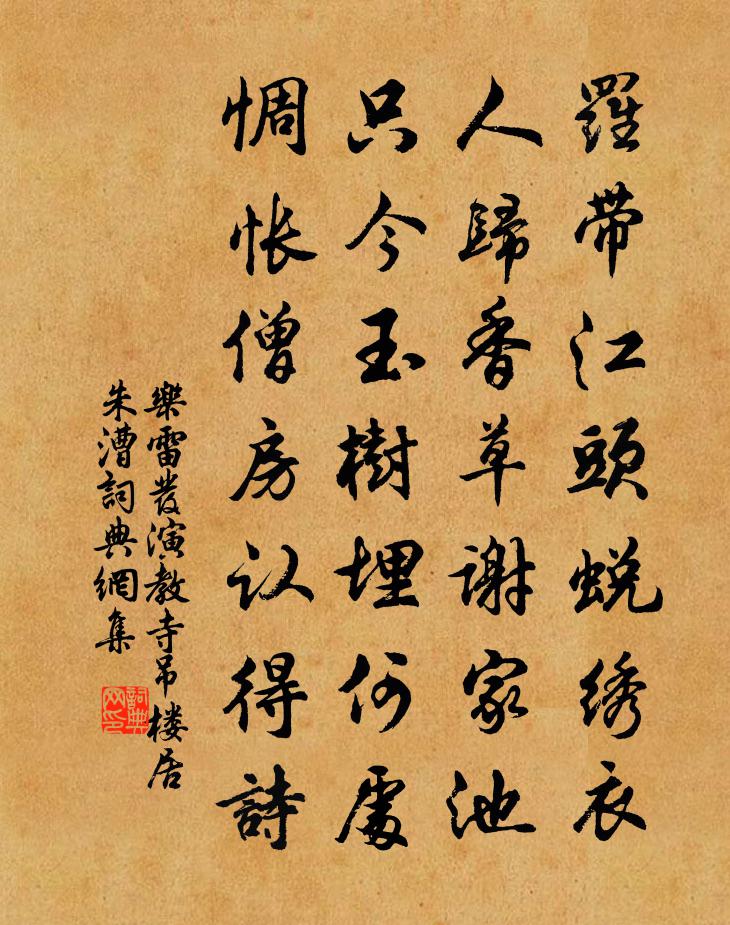 羅带江頭蜕绣衣
人歸香草谢家池
只今玉樹埋何處
惆怅僧房认得詩
樂雷發演教寺吊楼居
朱漕詞典網集
詞典网印